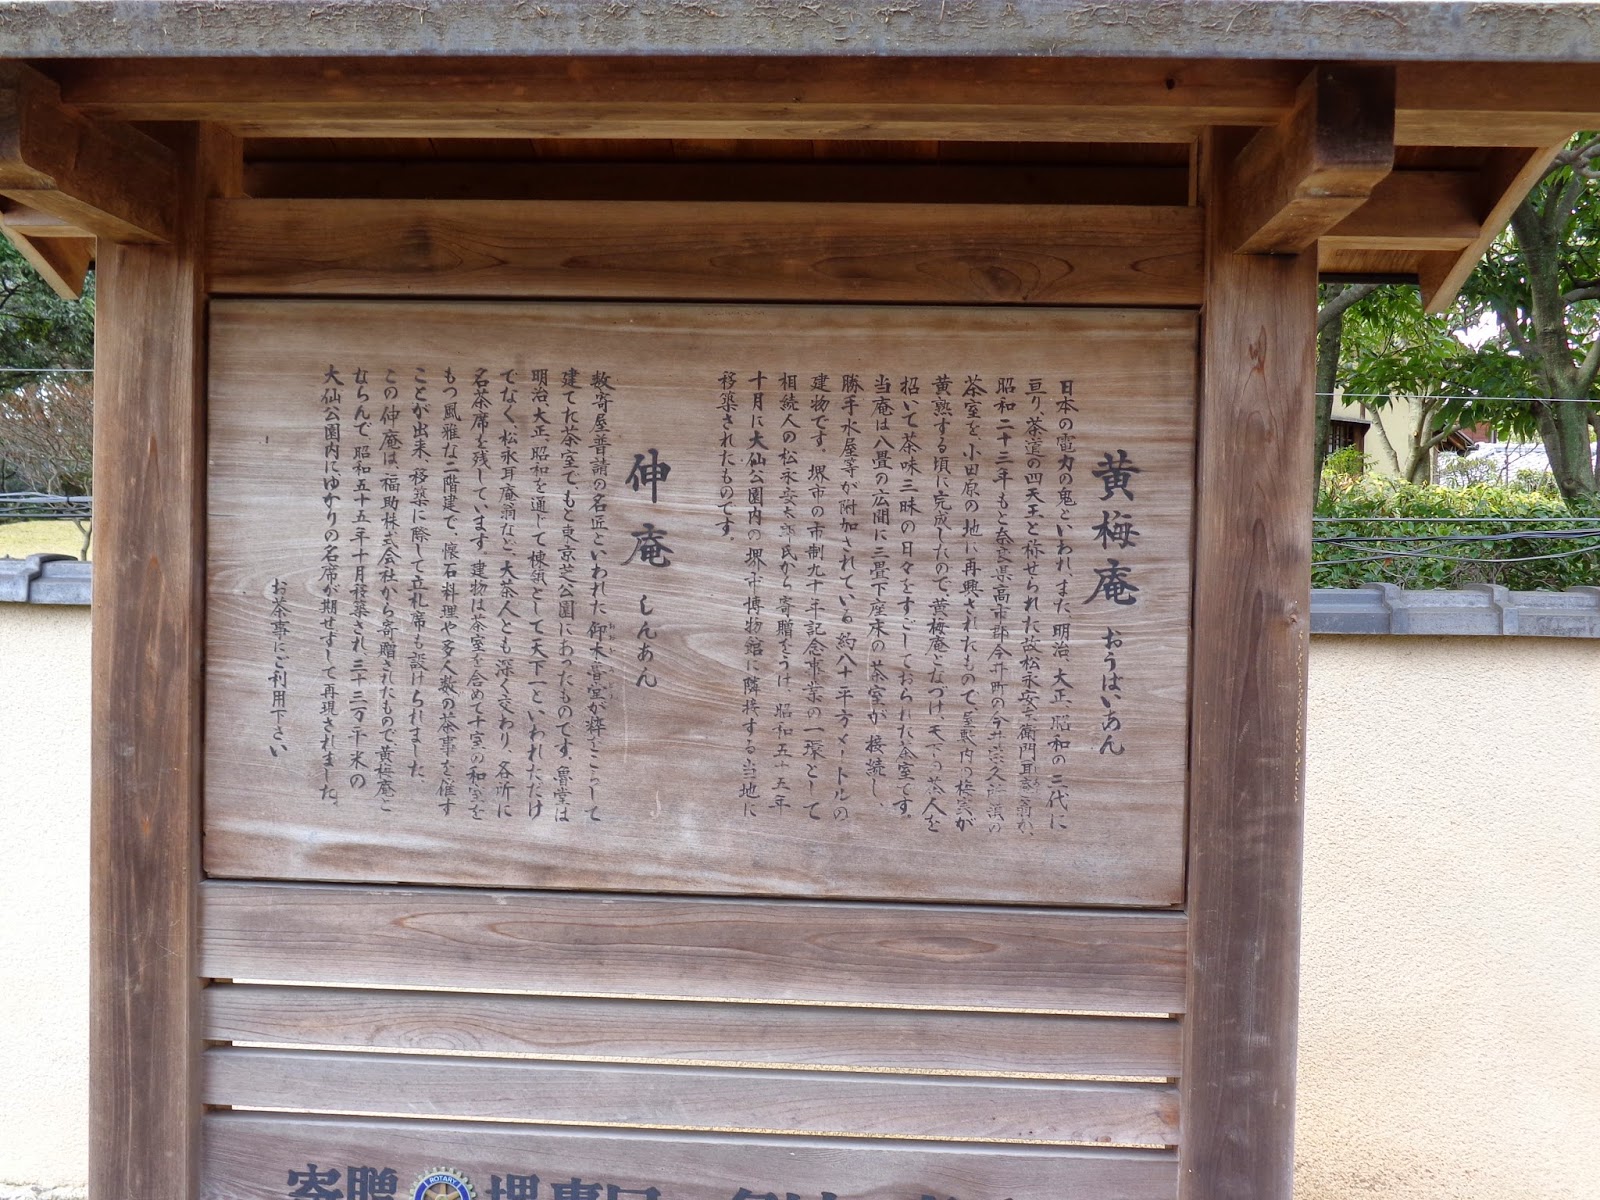 黄梅庵 おうばいあん
日本の電力の鬼といわれ、また、明治、大正、昭和の三代に
亘り、茶道の四天王と称せられた故松永安左衛門耳庵翁が、
昭和二十三年もと奈良県高市郡今井町の今井宗久所縁の
茶室を小田原の地に再興されたもので、屋敷内の梅実が
黄熟する頃に完成したので黄梅庵となづけ、天下の茶人を
招いて茶味三昧の日々をすごしておられた茶室です。
当庵は八畳の広間に三畳下座床の茶室が接続し、
勝手水屋等が附加されている約八十平方メートルの
建物です。堺市の市制九十年記念事業の一環として
相続人の松永安太郎氏から寄贈をうけ、昭和五十五年
十月に大仙公園内の堺市博物館に隣接する当地に
移築されたものです。
伸庵 しんあん
数寄屋普請の名匠といわれた仰木魯堂が粋をこらして
建てた茶室で、もと東京芝公園にあったものです。魯堂は
明治、大正、昭和を通じて棟領として天下一といわれただけ
でなく、松永耳庵翁など、大茶人とも深く交わり、各所に
名茶席を残しています。建物は茶室を含めて十室の和室を
もつ風雅な二階建で、懐石料理や多人数の茶事を催す
ことが出来、移築に際して立札席も設けられました。
この伸庵は、福助株式会社から寄贈されたもので黄梅庵と
ならんで、昭和五十五年十月移築され、三千三百平米の
大仙公園内にゆかりの名席が期せずして再現されました。
お茶事にご利用下さい
寄贈 ROTARY